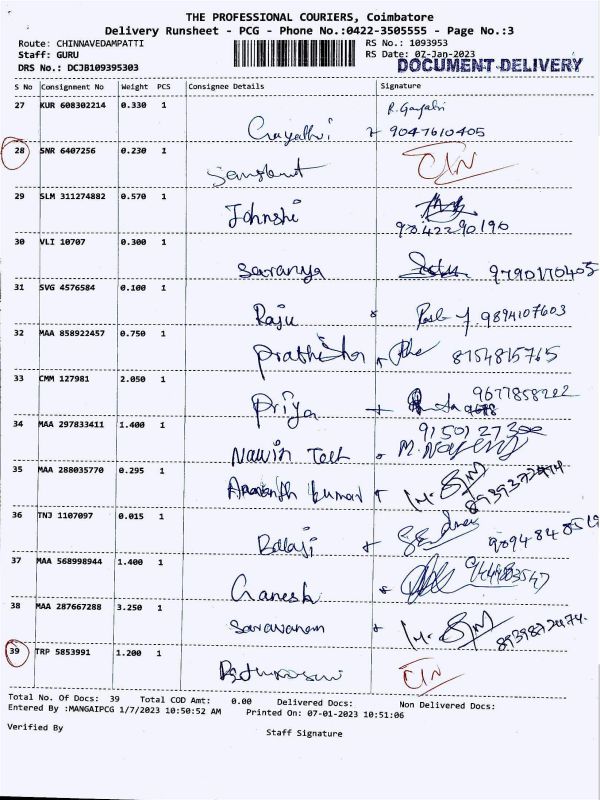 THE PROFESSIONAL COURIERS, Coimbatore
Delivery Runsheet - PCG - Phone No.:0422-3505555 - Page No.:3
Route: CHINNAVEDAMPATTI RS No.: 1093953
Staff: GURU RS Date: 07-Jan-2023
DRS No.: DCJB109395303 DOCUMENT DELIVERY
S No Consignment No Weight PCS Consignee Details Signature
27 KUR 608302214 0.330 1 R. Gayatri
Gayathri 9047610405
28 SNR 6407256 0.230 1
29 SLM 311274882 0.570 1
Johnshi
30 VLI 10707 0.300 1
Saranya 9790170405
31 SVG 4576584 0.100 1
Raju 9894107603
32 MAA 858922457 0.750 1
8754815765
33 CMM 127981 2.050 1
Priya
34 MAA 297833411 1.400 1
Nawin Tech
35 MAA 288035770 0.295 1
Kumar
36 TNJ 1107097 0.015 1
Balaji
37 MAA 568998944 1.400 1
Ganesh
38 MAA 287667288 3.250 1
Saravanan
39 TRP 5853991 1.200 1
Total No. Of Docs: 39 Total COD Amt: 0.00 Delivered Docs: Non Delivered Docs:
Entered By :MANGAIPCG 1/7/2023 10:50:52 AM Printed On: 07-01-2023 10:51:06
Verified By Staff Signature